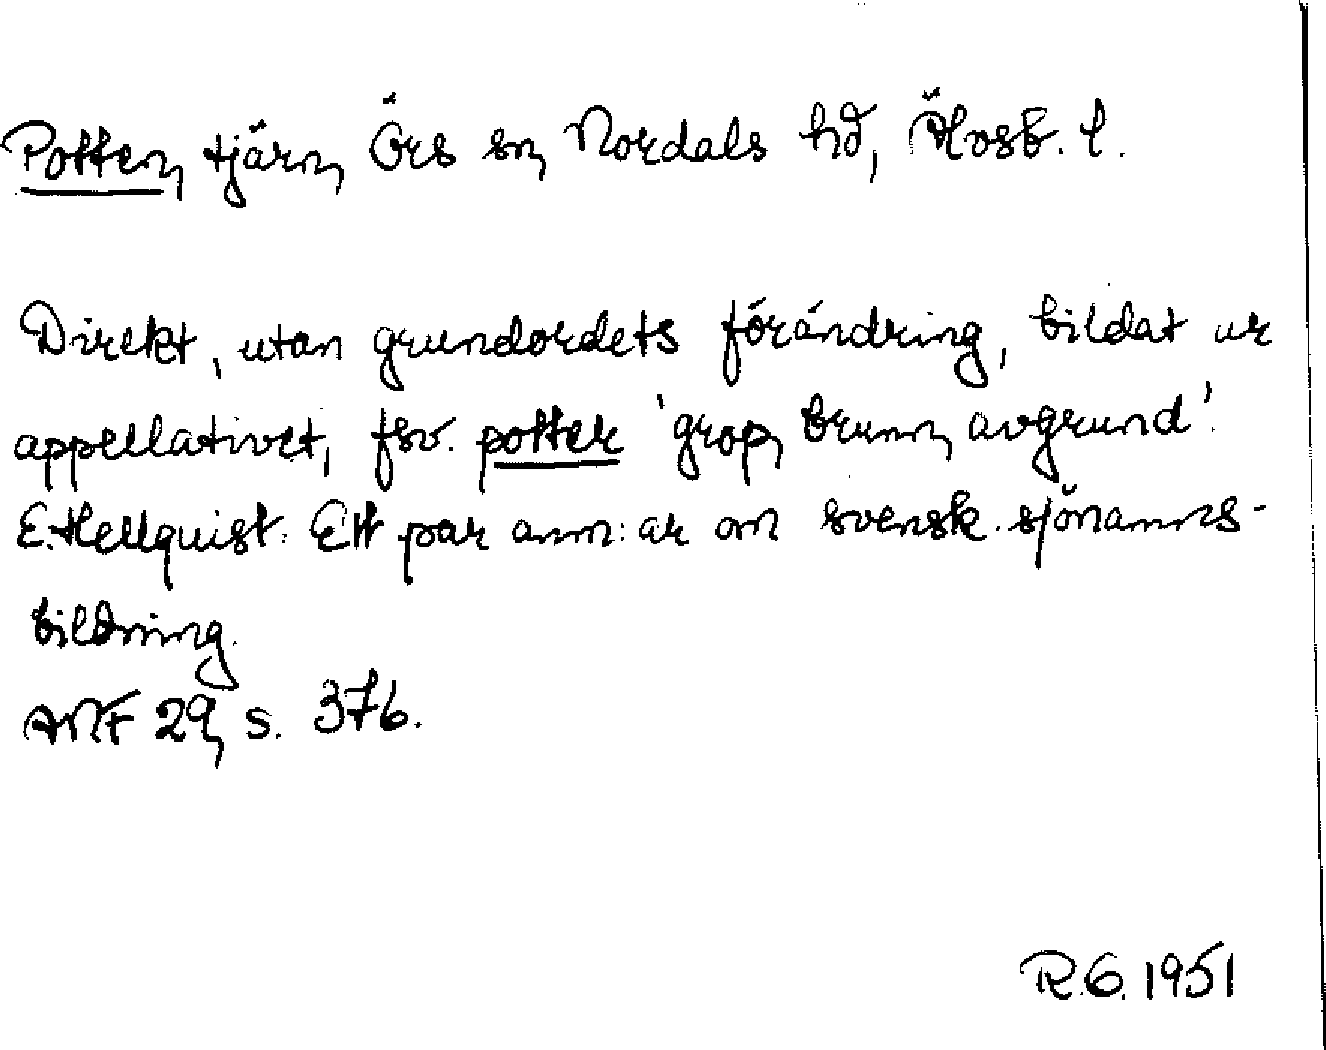 Potten, tjärn, Örs sn, Nordals hd, Älvsb. l.
Direkt, utan grundordets förändring, bildat ur
appellativet, fsv. potter 'grop, brunn, avgrund'.
E. Hellquist. Ett par anm:ar om svensk sjönamns-
bildning.
ANF 29, s. 376.
R.G. 1951